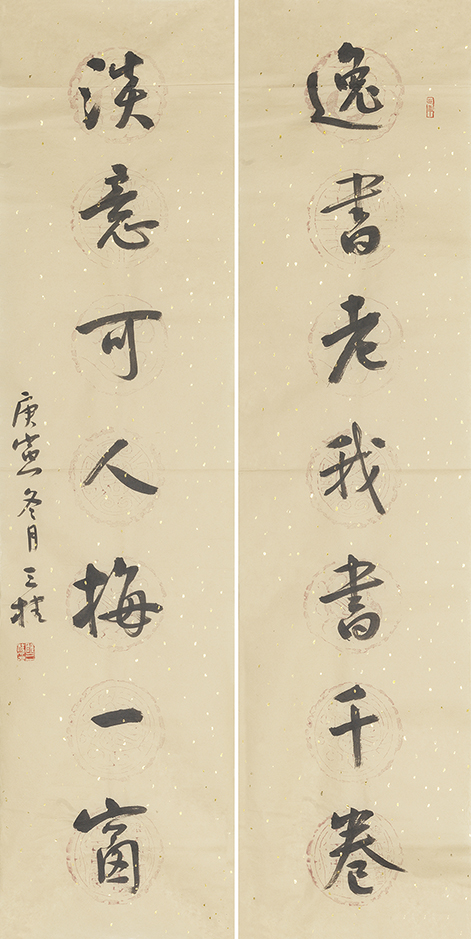 逸書老我書千卷
淡意可人梅一窗
庚寅冬月